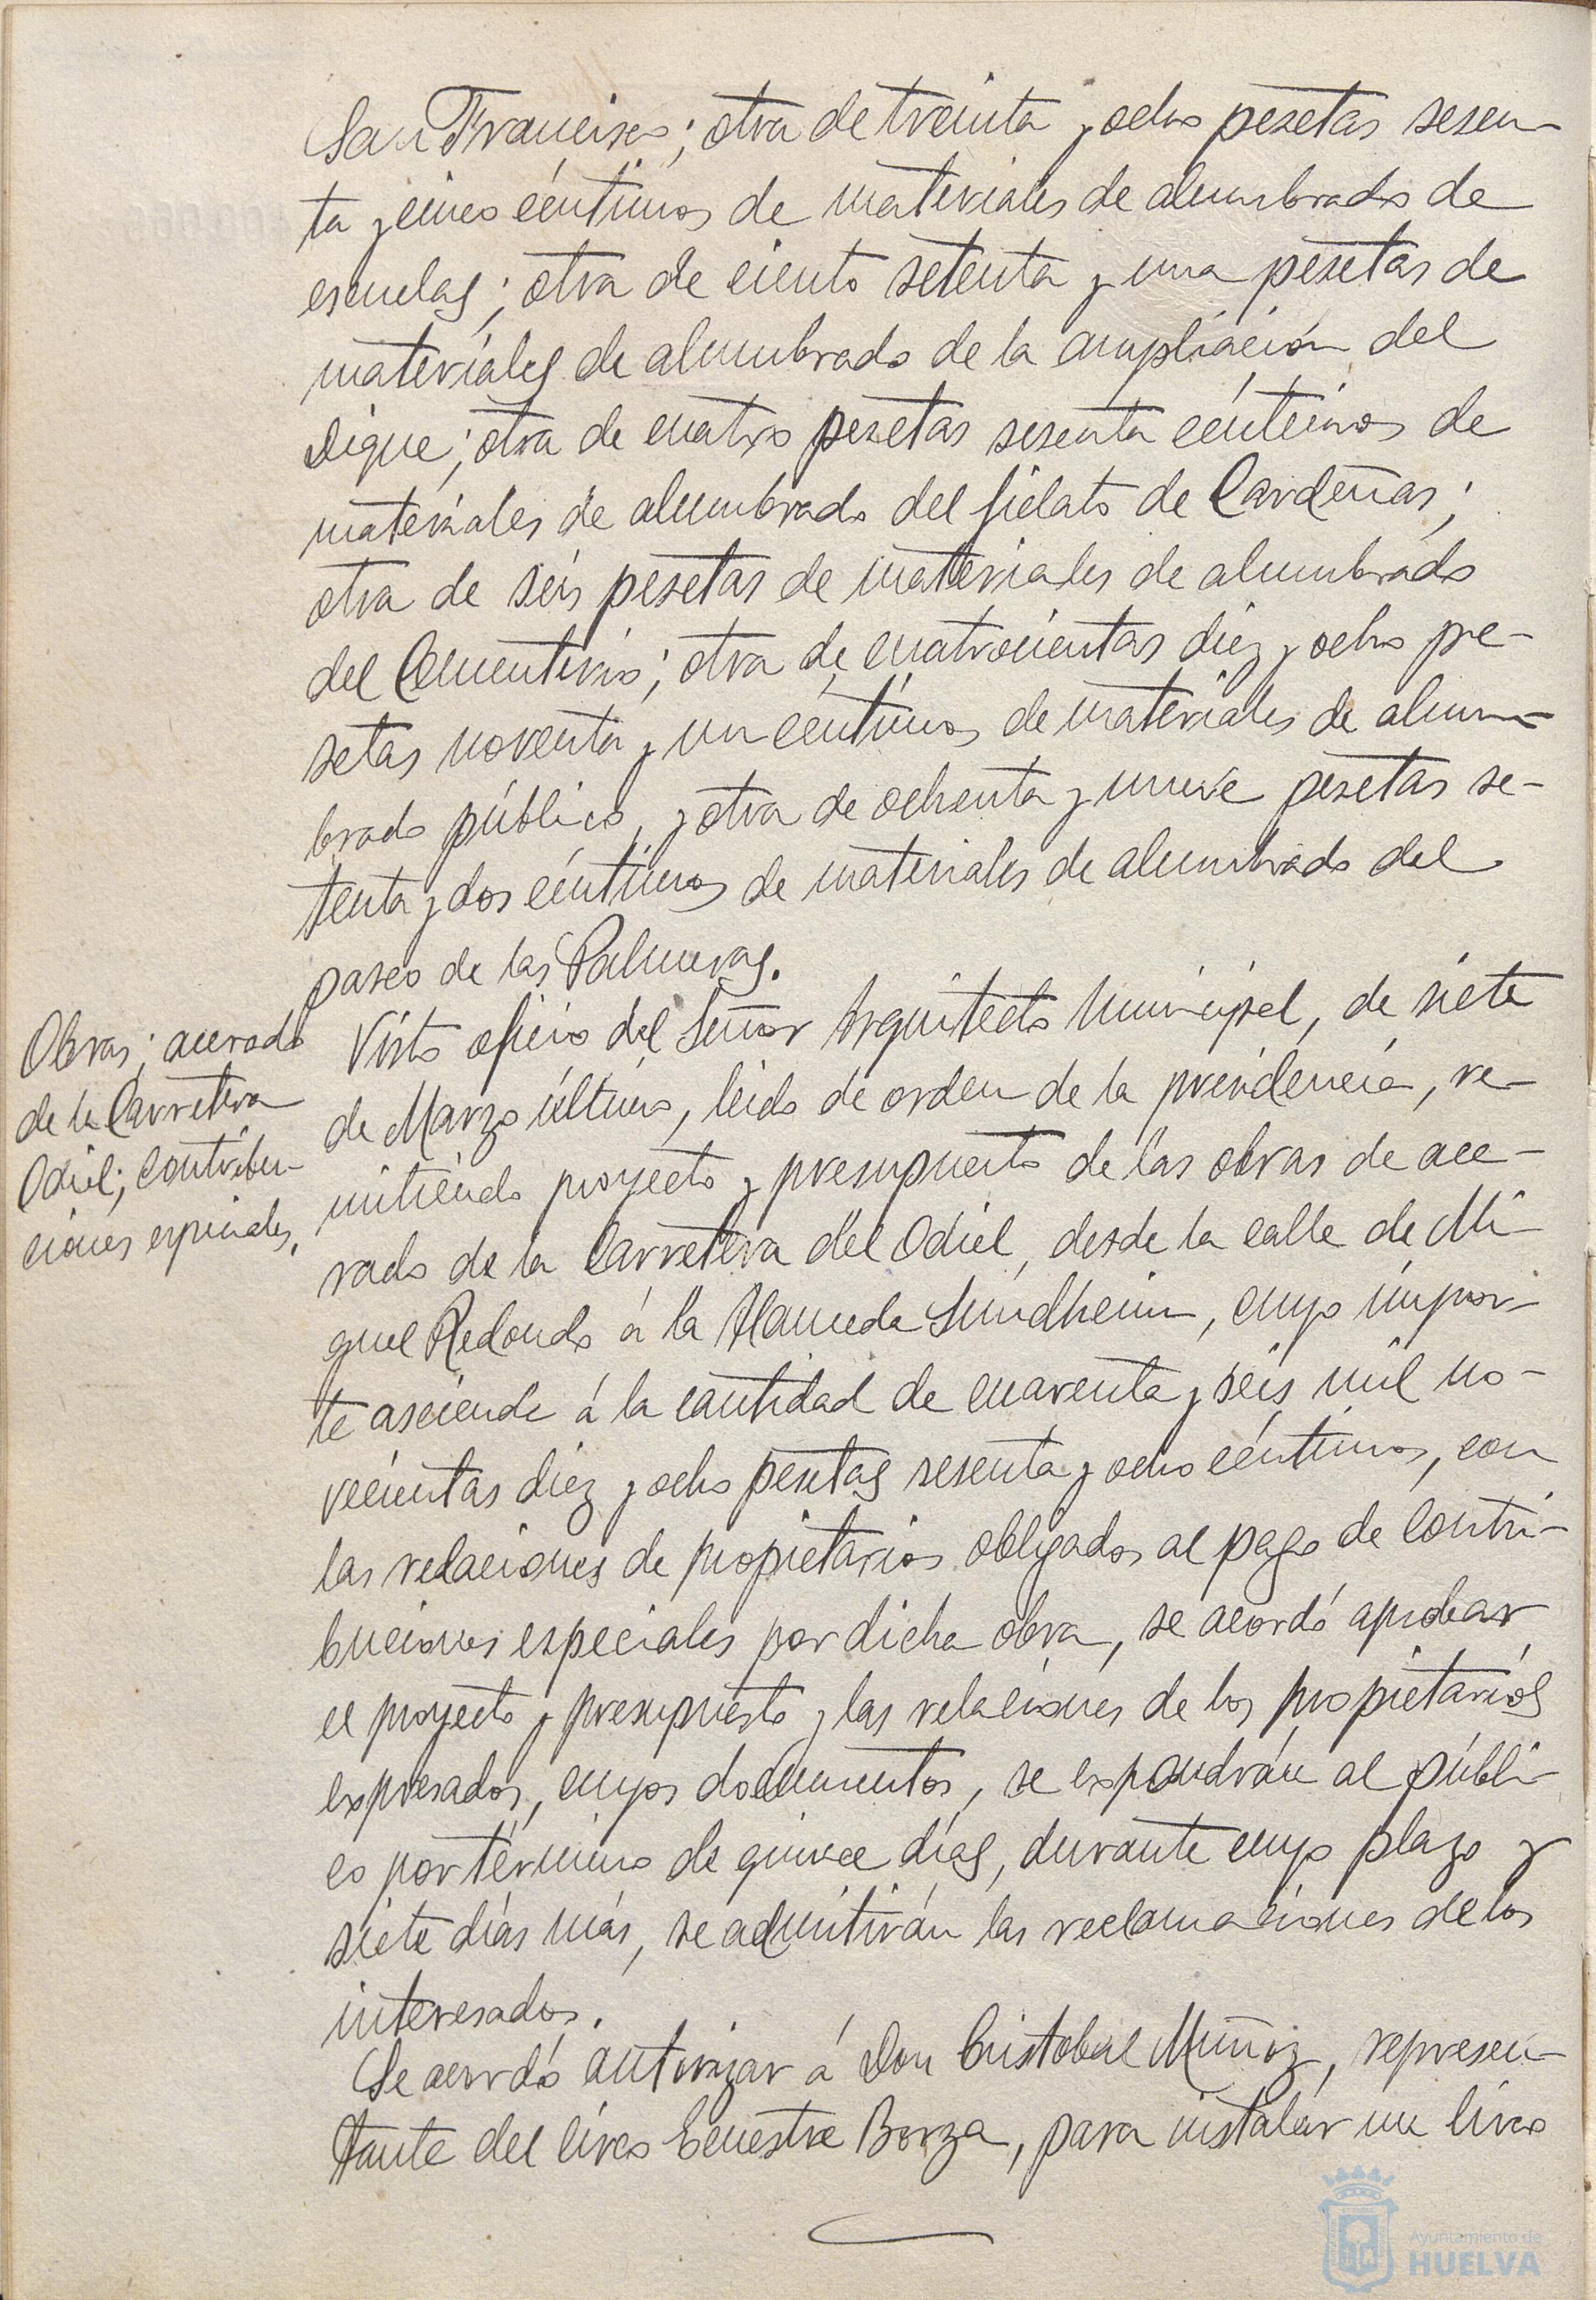 San Francisco; otra de treinta y ocho pesetas sesen-
ta y cinco céntimos de materiales de alumbrado de
escuelas; otra de ciento setenta y una pesetas de
materiales de alumbrado de la ampliación del
Dique; otra de cuatro pesetas sesenta céntimos de
materiales de alumbrado del fielato de Cardeñas;
otra de seis pesetas de materiales de alumbrado
del Cementerio; otra de cuatrocientas diez y ocho pe-
setas noventa y un céntimos de materiales de alum-
brado público, y otra de ochenta y nueve pesetas se-
tenta y dos céntimos de materiales de alumbrado del
paseo de las Palmeras.
Obras; acerado
de la Carretera
Odiel; contribu-
ciones especiales.
Visto oficio del Señor Arquitecto Municipal, de siete
de Marzo último, leido de orden de la presidencia, re-
mitiendo proyecto y presupuesto de las obras de ace-
rado de la Carretera del Odiel, desde la calle de Mi-
guel Redondo á la Alameda Sundheim, cuyo impor-
te asciende á la cantidad de cuarenta y seis mil no-
vecientas diez y ocho pesetas sesenta y ocho céntimos, con
las relaciones de propietarios obligados al pago de contri-
buciones especiales por dicha obra, se acordó aprobar
el proyecto y presupuesto y las relaciones de los propietarios
expresados, cuyos documentos, se expondrán al públi-
co por término de quince días, durante cuyo plazo y
siete días más, se admitirán las reclamaciones de los
interesados.
Se acordó autorizar á Don Cristobal Muñoz, represen-
tante del circo Ecuestre Borza, para instalar un circo
Ayuntamiento de
HUELVA